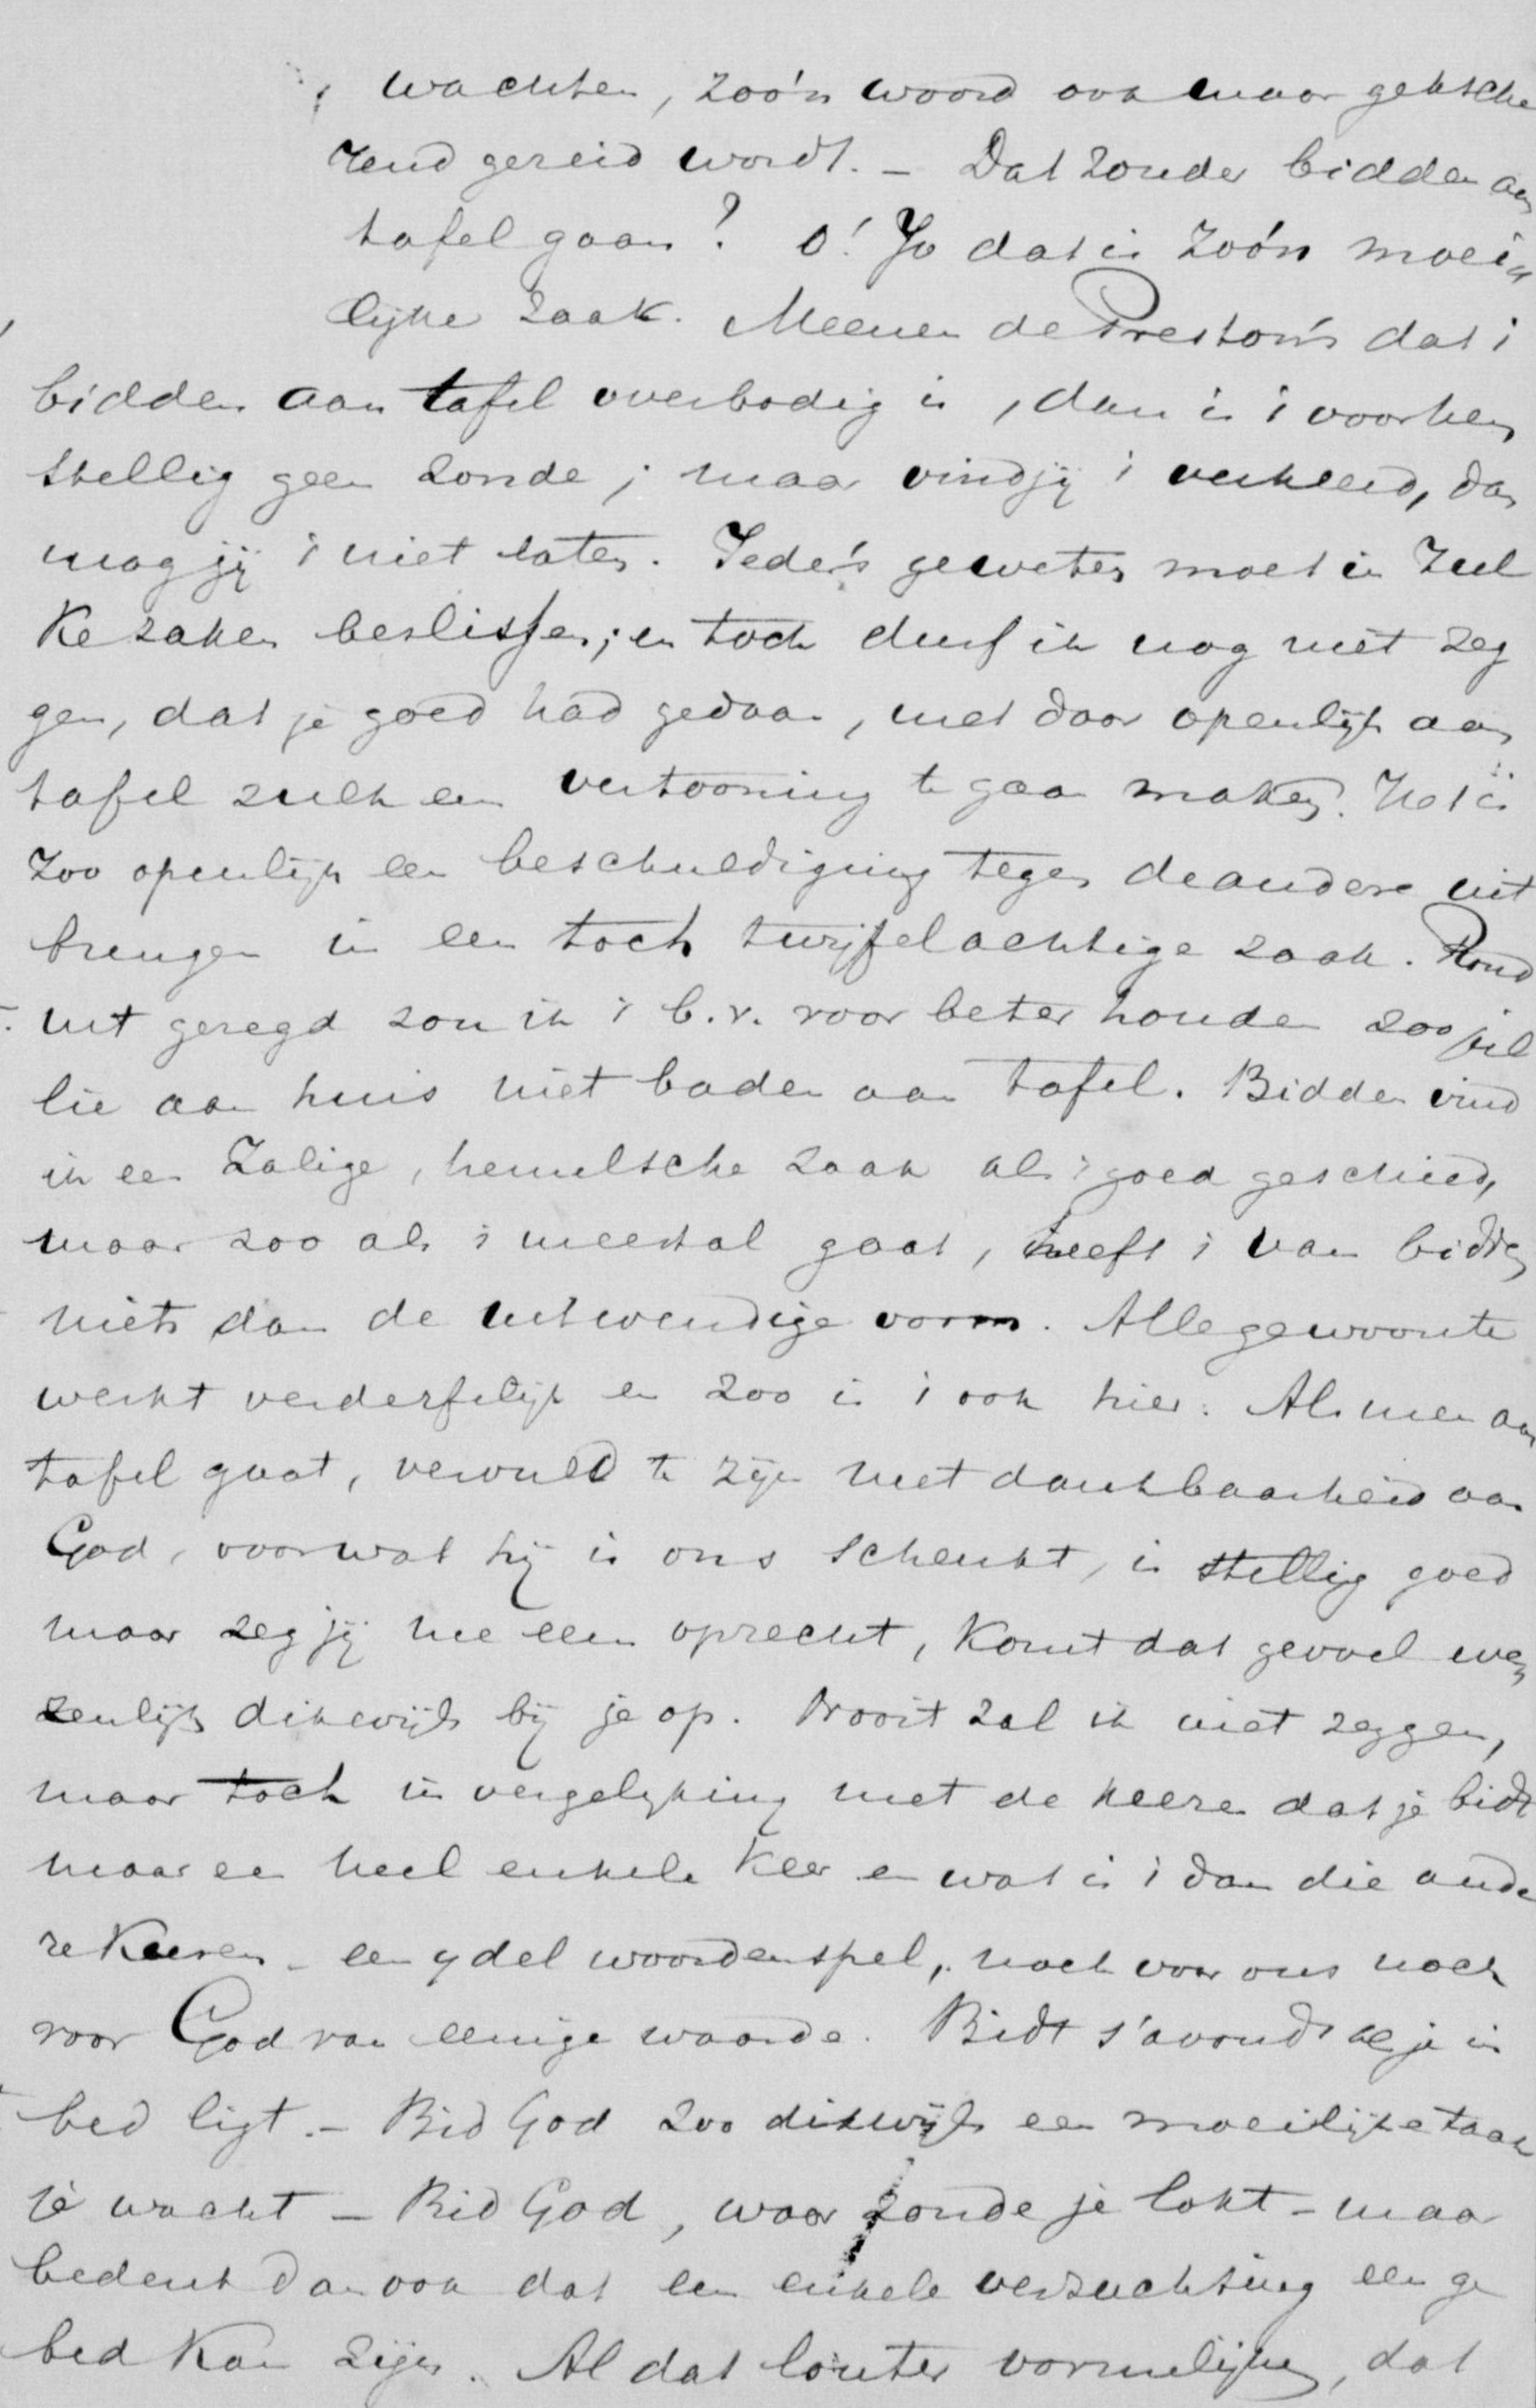 wachten, zoo'n woord ook maar geksche
rend gezeid wordt. – Dat zonder bidden aan
tafel gaan? O! Jo dat is zoo'n moei
lijke zaak. Meenen de Preston's dat i
bidden aan tafel overbodig is, dan is i voor hen
stellig geen zonde; maar vind jij i verkeerd, dan
mag jij i niet laten. Ieder's geweten moet in zul
ke zaken beslissen; en toch durf ik nog niet zeg
gen, dat je goed had gedaan, met daar openlijk aan
tafel zulk een vertooning te gaan maken. Het is
zoo openlijk een beschuldiging tegen de andere uit
brengen in een toch twijfelachtige zaak. Rond
uit gezegd zou ik i b.v. voor beter houden zoo jul
lie aan huis niet baden aan tafel. Bidden vind
ik een zalige, hemelsche zaak als i goed geschied,
maar zoo als i meestal gaat, heeft i van bidden
niets dan de uitwendige vorm. Alle gewoonte
werkt verderfelijk en zoo is i ook hier. Als men aan
tafel gaat, vervuld te zijn met dankbaarheid aan
God, voor wat hij is ons schenkt, is stellig goed
maar zeg jij me eens oprecht, komt dat gevoel we
zenlijk dikwijls bij je op. Nooit zal ik niet zeggen,
maar toch in vergelyking met de keeren dat je bidt
maar een heel enkele keer en wat is i dan die ande
re keeren – een ydel woordenspel, noch voor ons noch
voor God van eenige waarde. Bidt s'avonds als je in
bed ligt. – Bid God zoo dikwijls een moeilijke taak
je wacht – Bid God, waar zonde je lokt – maar
bedenk dan ook dat een enkele verzuchting een ge
bed kan zijn. Al dat louter vormelijke, dat